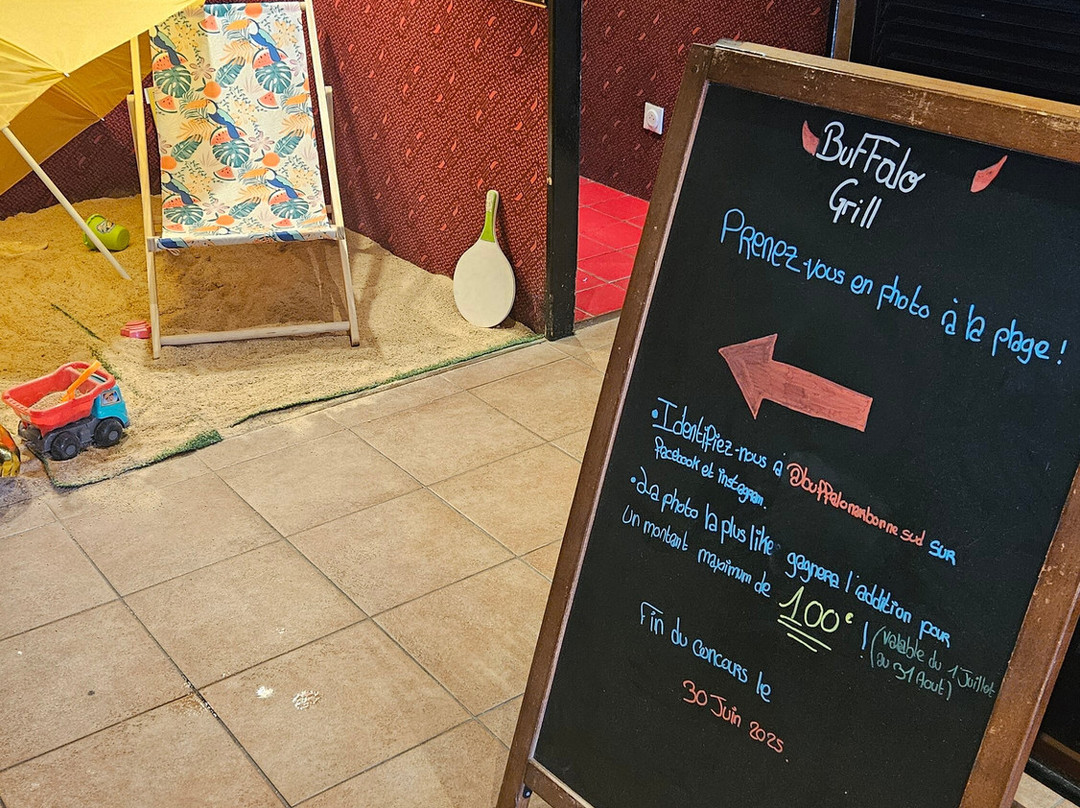 Buffalo
Grill
Prenez-vous en photo à la plage !
• Identifiez-nous à @buffalonarbonne sud sur
facebook et instagram.
• La photo la plus liké gagnera l'addition pour
un montant maximum de 100€ !
(valable du 1 Juillet
au 31 Août)
Fin du concours le
30 Juin 2025